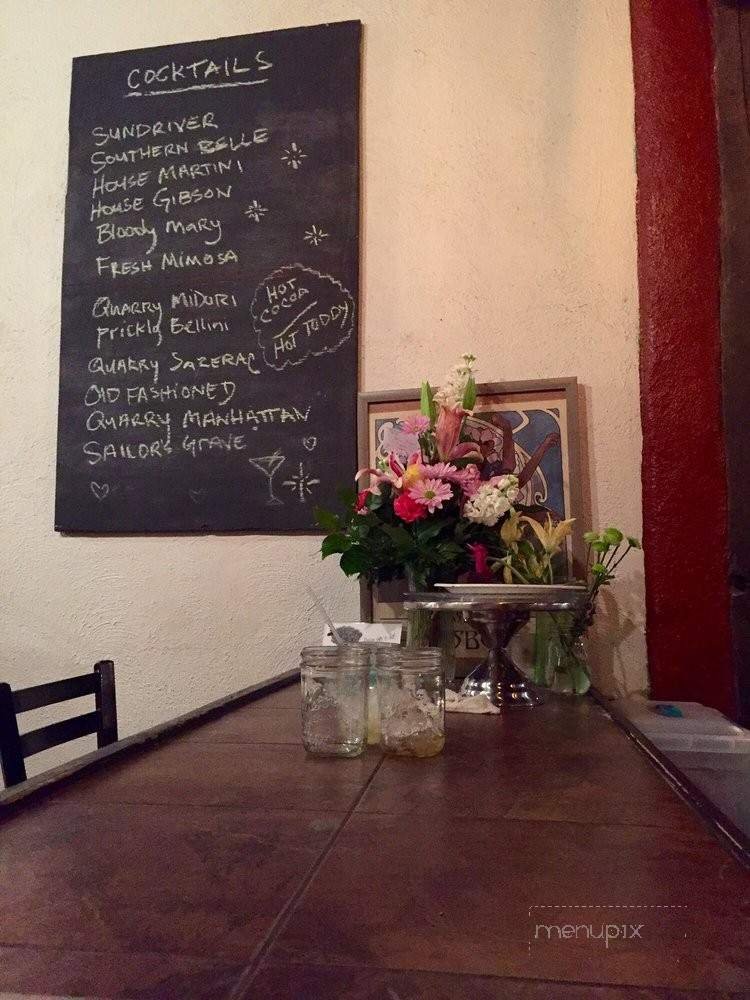 COCKTAILS
SUNDRIVER
SOUTHERN BELLE
HOUSE MARTINI
HOUSE GIBSON
Bloody MARY
FRESH MIMOSA
QUARRY MIDORI
Prickly Bellini
QUARRY SAZERAC
OLD FASHIONED
QUARRY MANHATTAN
SAILOR'S GRAVE
HOT
COCOA
HOT TODDY
menupix